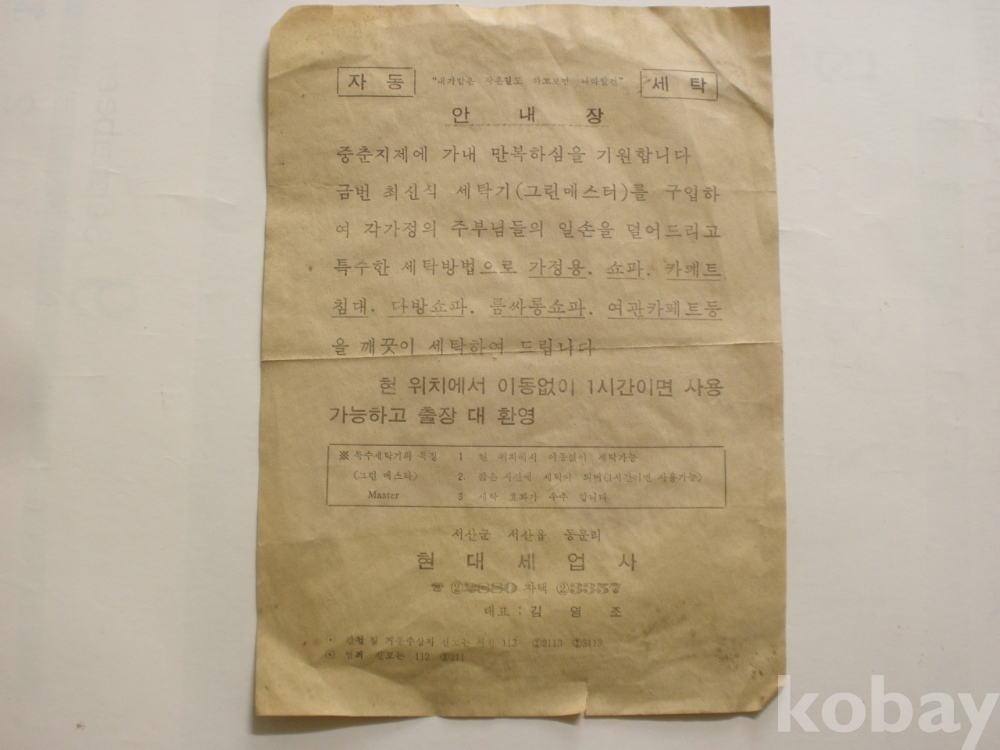 자 동 "내가밟은 작은말도 하고보면 나라발전" 세 탁
안 내 장
중춘지제에 가내 만복하심을 기원합니다
금번 최신식 세탁기(그린메스터)를 구입하
여 각가정의 주부님들의 일손을 덜어드리고
특수한 세탁방법으로 가정용. 쇼파. 카페트
침대. 다방쇼파. 룸싸롱쇼파. 여관카페트등
을 깨끗이 세탁하여 드립니다
현 위치에서 이동없이 1시간이면 사용
가능하고 출장 대 환영
※ 특수세탁기의 특징 1 현 위치에서 이동없이 세탁가능
(그린 메스터) 2. 짧은 시간에 세탁이 되며(1시간이면 사용가능)
Master 3 세탁 효과가 우수 합니다
서산군 서산읍 동문리
현 대 세 업 사
☎ ②2880 자택 ②3357
대표 : 김 영 조
신고는 113 ②2113 ②3113
범죄 신고는 112
kobay